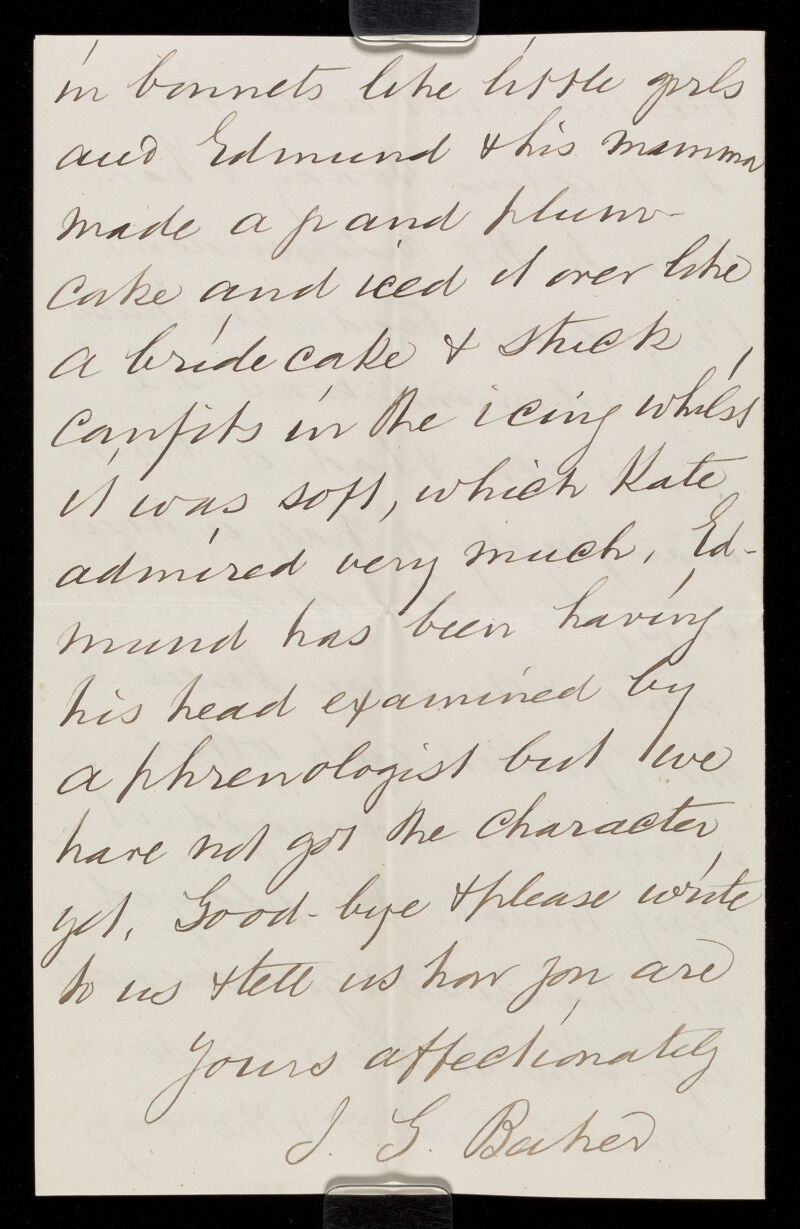 in bonnets like little girls
and Edmund & his mamma
made a grand plum-
cake and iced it over like
a bridecake & stuck
comfits in the icing whilst
it was soft, which Kate
admired very much. Ed-
mund has been having
his head examined by
a phrenologist but we
have not got the character
yet. Good-bye & please write
to us & tell us how you are
Yours affectionately
J. G. Baker